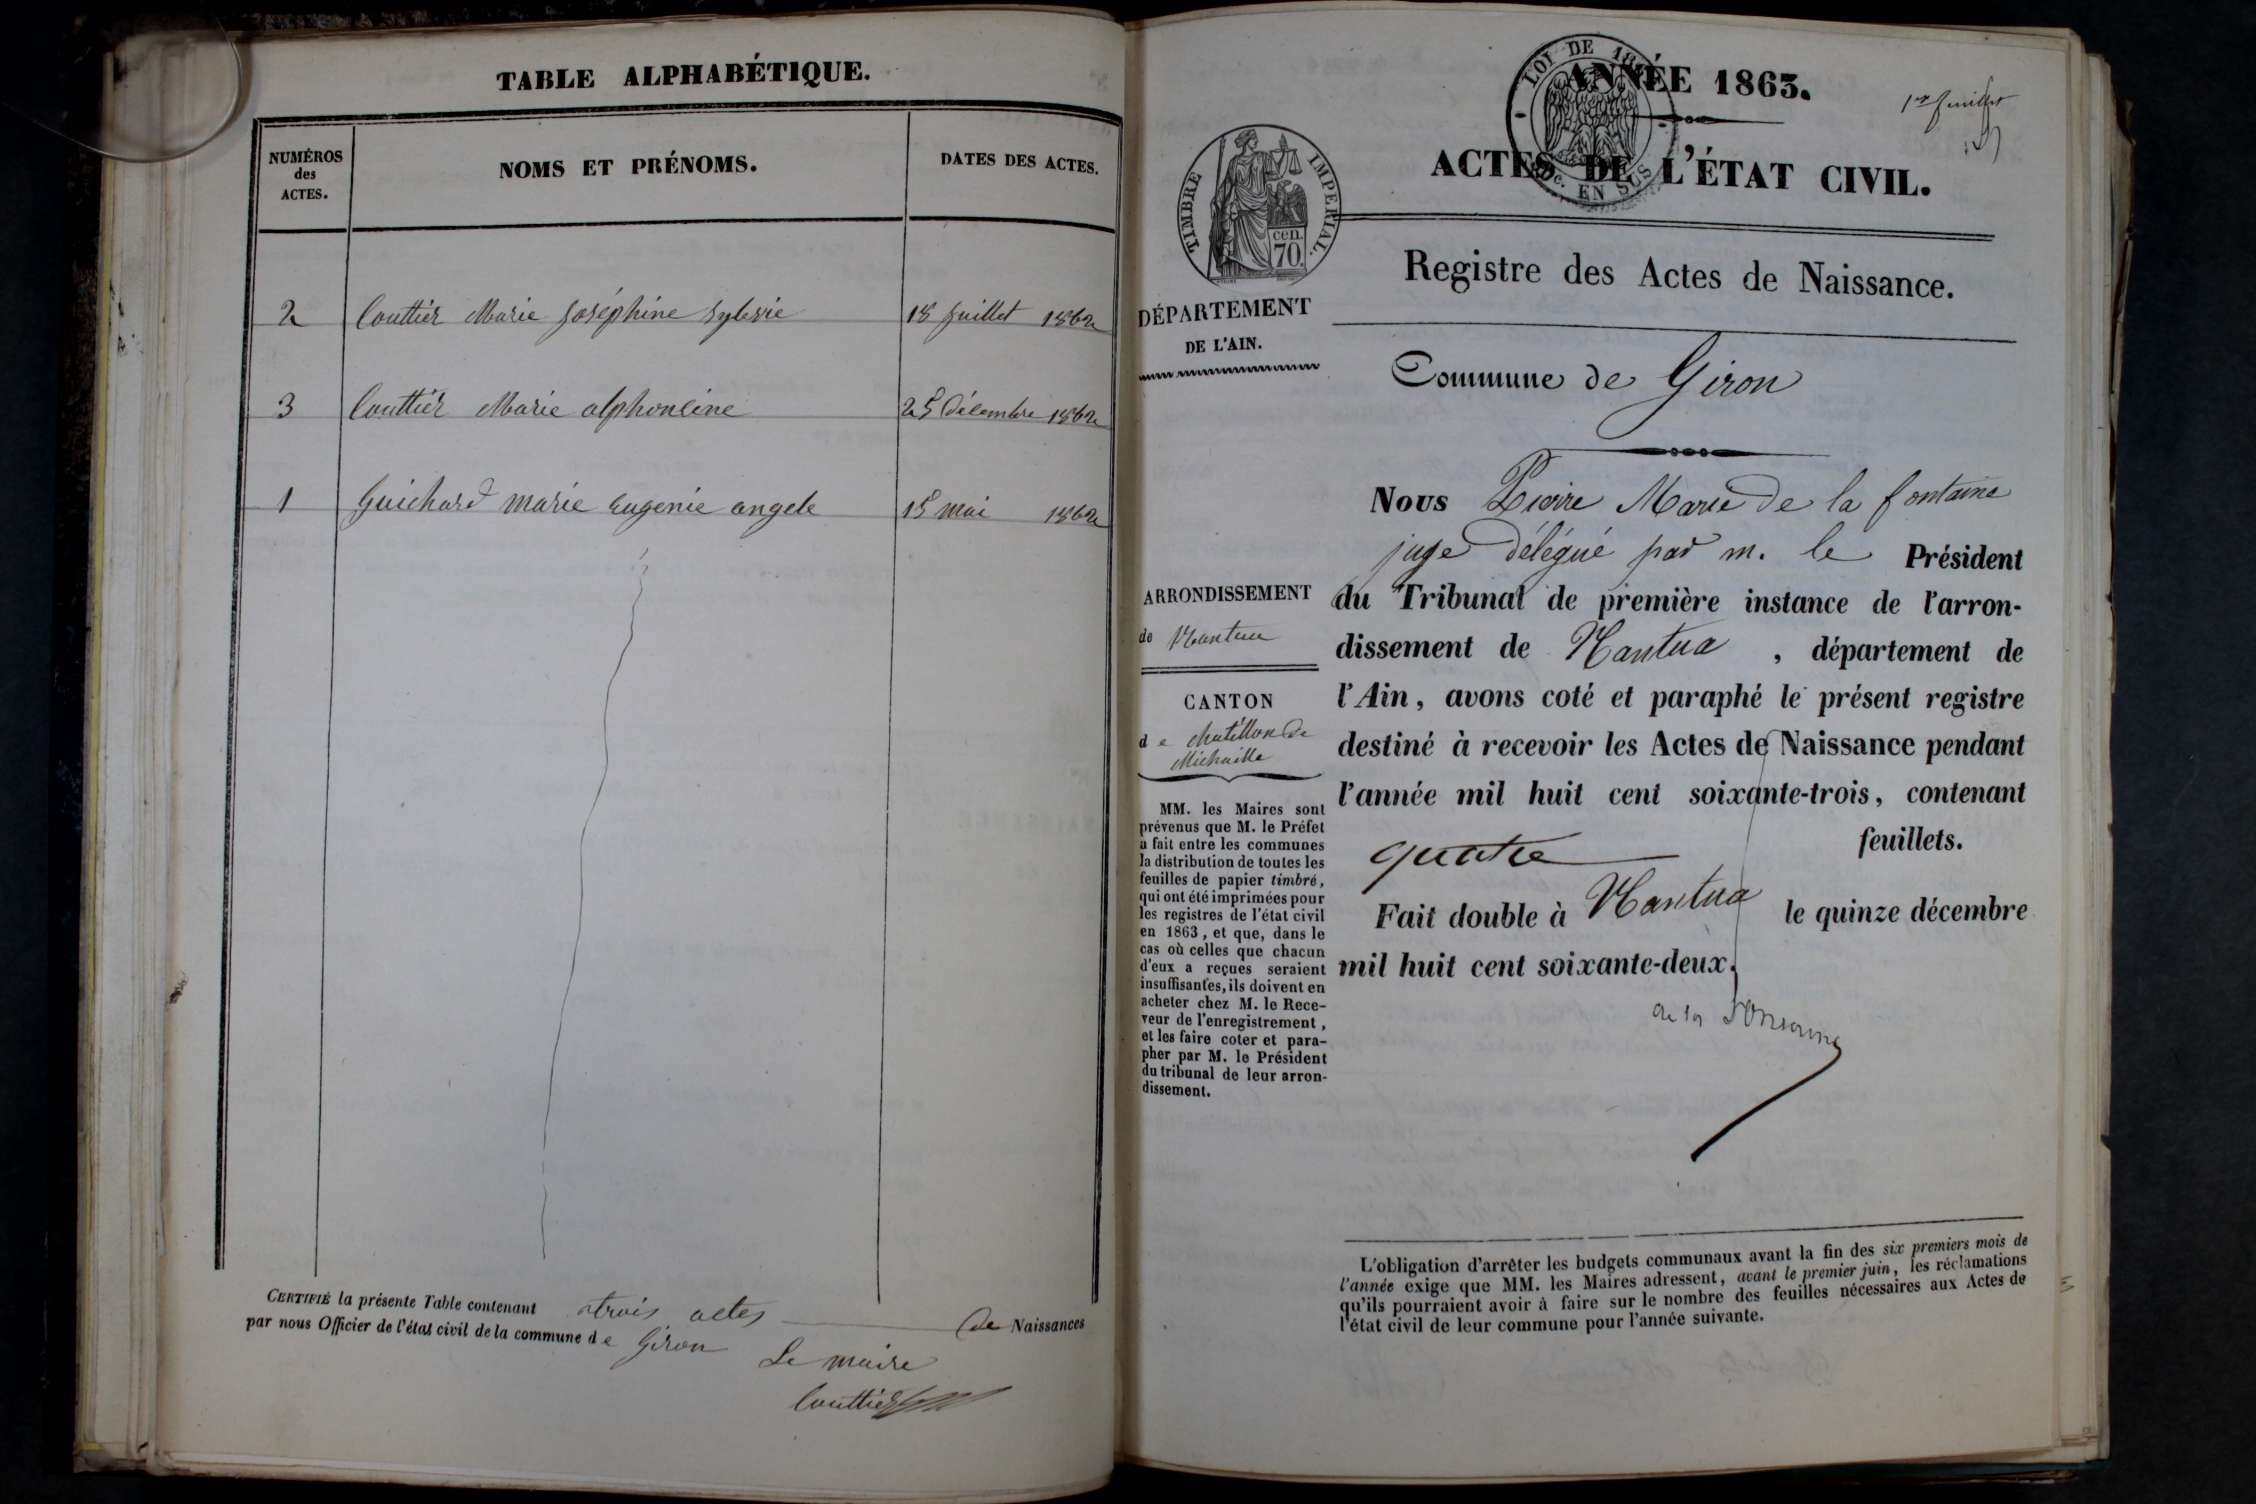 TABLE ALPHABÉTIQUE.
NUMÉROS
des
ACTES.
NOMS ET PRÉNOMS.
DATES DES ACTES.
2 Couttier Marie Joséphine Sylvie 18 juillet 1862
3 Couttier Marie alphonsine 25 décembre 1862
1 Guichard marie eugenie angele 15 mai 1862
CERTIFIÉ la présente Table contenant trois actes de Naissances
par nous Officier de l'état civil de la commune de Giron
Le maire
Couttier
ANNÉE 1863.
1er feuillet
LOI DE
DE EN SUS
ACTES DE L'ÉTAT CIVIL.
TIMBRE IMPERIAL.
cen.
70.
Registre des Actes de Naissance.
DÉPARTEMENT
DE L'AIN.
Commune de Giron
Nous Pierre Marie De la fontaine
juge Délégué par m. le Président
du Tribunal de première instance de l'arron-
dissement de Nantua, département de
l'Ain, avons coté et paraphé le présent registre
destiné à recevoir les Actes de Naissance pendant
l'année mil huit cent soixante-trois, contenant
quatre feuillets.
Fait double à Nantua le quinze décembre
mil huit cent soixante-deux.
de la Fontaine
ARRONDISSEMENT
de Nantua
CANTON
de chatillon De
Michaille
MM. les Maires sont
prévenus que M. le Préfet
a fait entre les communes
la distribution de toutes les
feuilles de papier timbré,
qui ont été imprimées pour
les registres de l'état civil
en 1863, et que, dans le
cas où celles que chacun
d'eux a reçues seraient
insuffisantes, ils doivent en
acheter chez M. le Rece-
veur de l'enregistrement,
et les faire coter et para-
pher par M. le Président
du tribunal de leur arron-
dissement.
L'obligation d'arrêter les budgets communaux avant la fin des six premiers mois de
l'année exige que MM. les Maires adressent, avant le premier juin, les réclamations
qu'ils pourraient avoir à faire sur le nombre des feuilles nécessaires aux Actes de
l'état civil de leur commune pour l'année suivante.